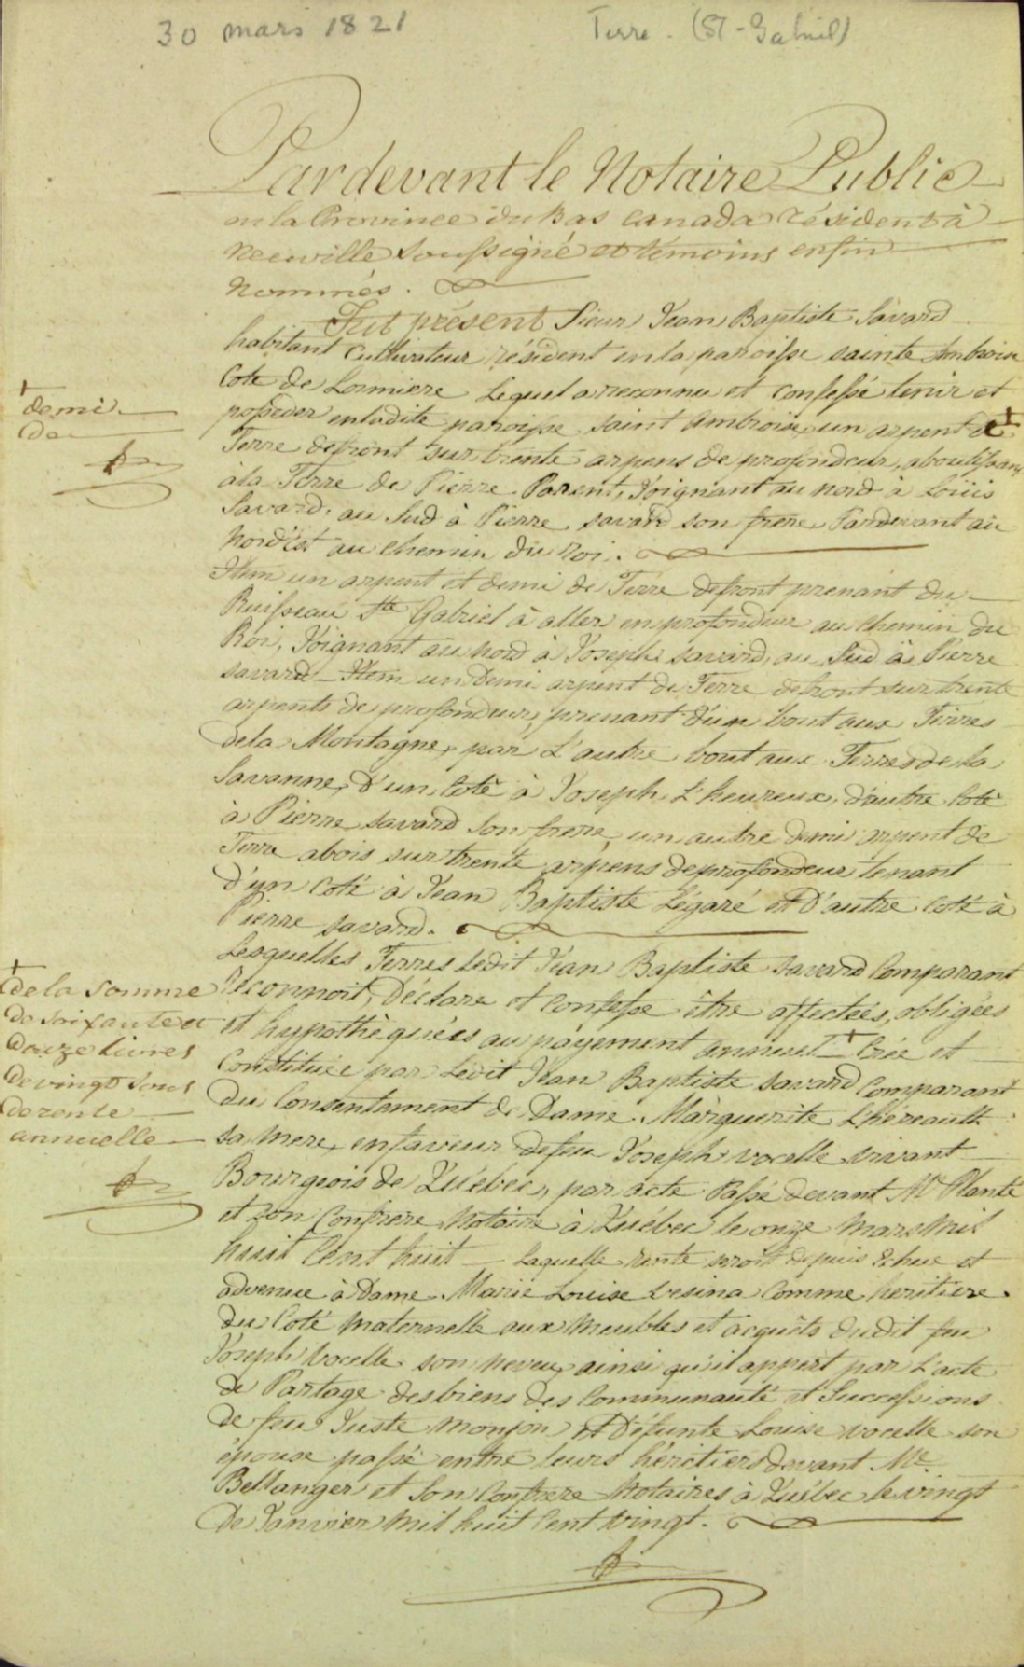 30 mars 1821
Terre. (St-Gabriel)
Pardevant le Notaire Public
en la Province du Bas Canada résident à
Neuville soussigné et témoins enfin
nommés.
Fut présent Sieur Jean Baptiste Savard
habitant Cultivateur résident en la paroisse sainte Ambroise
Cote de Lormiere Lequel a reconnu et confessé tenir et
posseder en ladite paroisse saint Ambroise un arpent et +
+ demi
de
Terre defront sur trente arpens de profondeur, aboutissant
à la Terre de Pierre Parent, Joignant au nord à Loüis
Savard, au Sud à Pierre savard son frere, Pardevant au
Nord'est au chemin du Roi.
Item un arpent et demi de Terre defront prenant du
Ruisseau Ste Gabriel à aller en profondeur au Chemin du
Roi, Joignant au nord à Joseph savard, au Sud à Pierre
savard Item un Demi arpent de Terre defront sur trente
arpents de profondeur, prenant d'un bout aux Terres
dela Montagne, par L'autre bout aux Terres de la
Savanne, D'un Coté à Joseph L'heureux, d'autre Coté
à Pierre savard Son frere, un autre demi arpent de
Terre abois sur trente arpens de profondeur tenant
d'un Coté à Jean Baptiste Légaré et D'autre Coté à
Pierre savard.
Lesquelles Terres Ledit Jean Baptiste savard Comparant
reconnoit, Déclare et Confesse être affectées, obligées
et hypothéquées au payement annuel + Crée et
+
de la somme
de soixante et
douze livres
de vingt sous
de rente
annuelle
Constituée par Ledit Jean Baptiste savard Comparant
du Consentement de Dame Marguerite Lhéreault
sa mere, en faveur defeu Joseph vocelle vivant
Bourgeois de Québec, par acte Passé devant Me Planté
et son Confrere Notaire à Québec le onze Mars Mil
huit Cent huit Laquelle rente seroit depuis Echue et
advenue à Dame Marie Louise Vesina Comme heritiere
du Coté maternelle aux Meubles et acquêts dudit feu
Joseph Vocelle son neveu, ainsi qu'il appert par L'acte
de Partage des biens des Communauté et Successions
de feu Juste Monjon et Défunte Louise vocelle son
épouse passé entre leurs héritiers devant Me
Bellanger et Son Confrere Notaires à Québec le vingt
De Janvier Mil huit Cent Vingt.